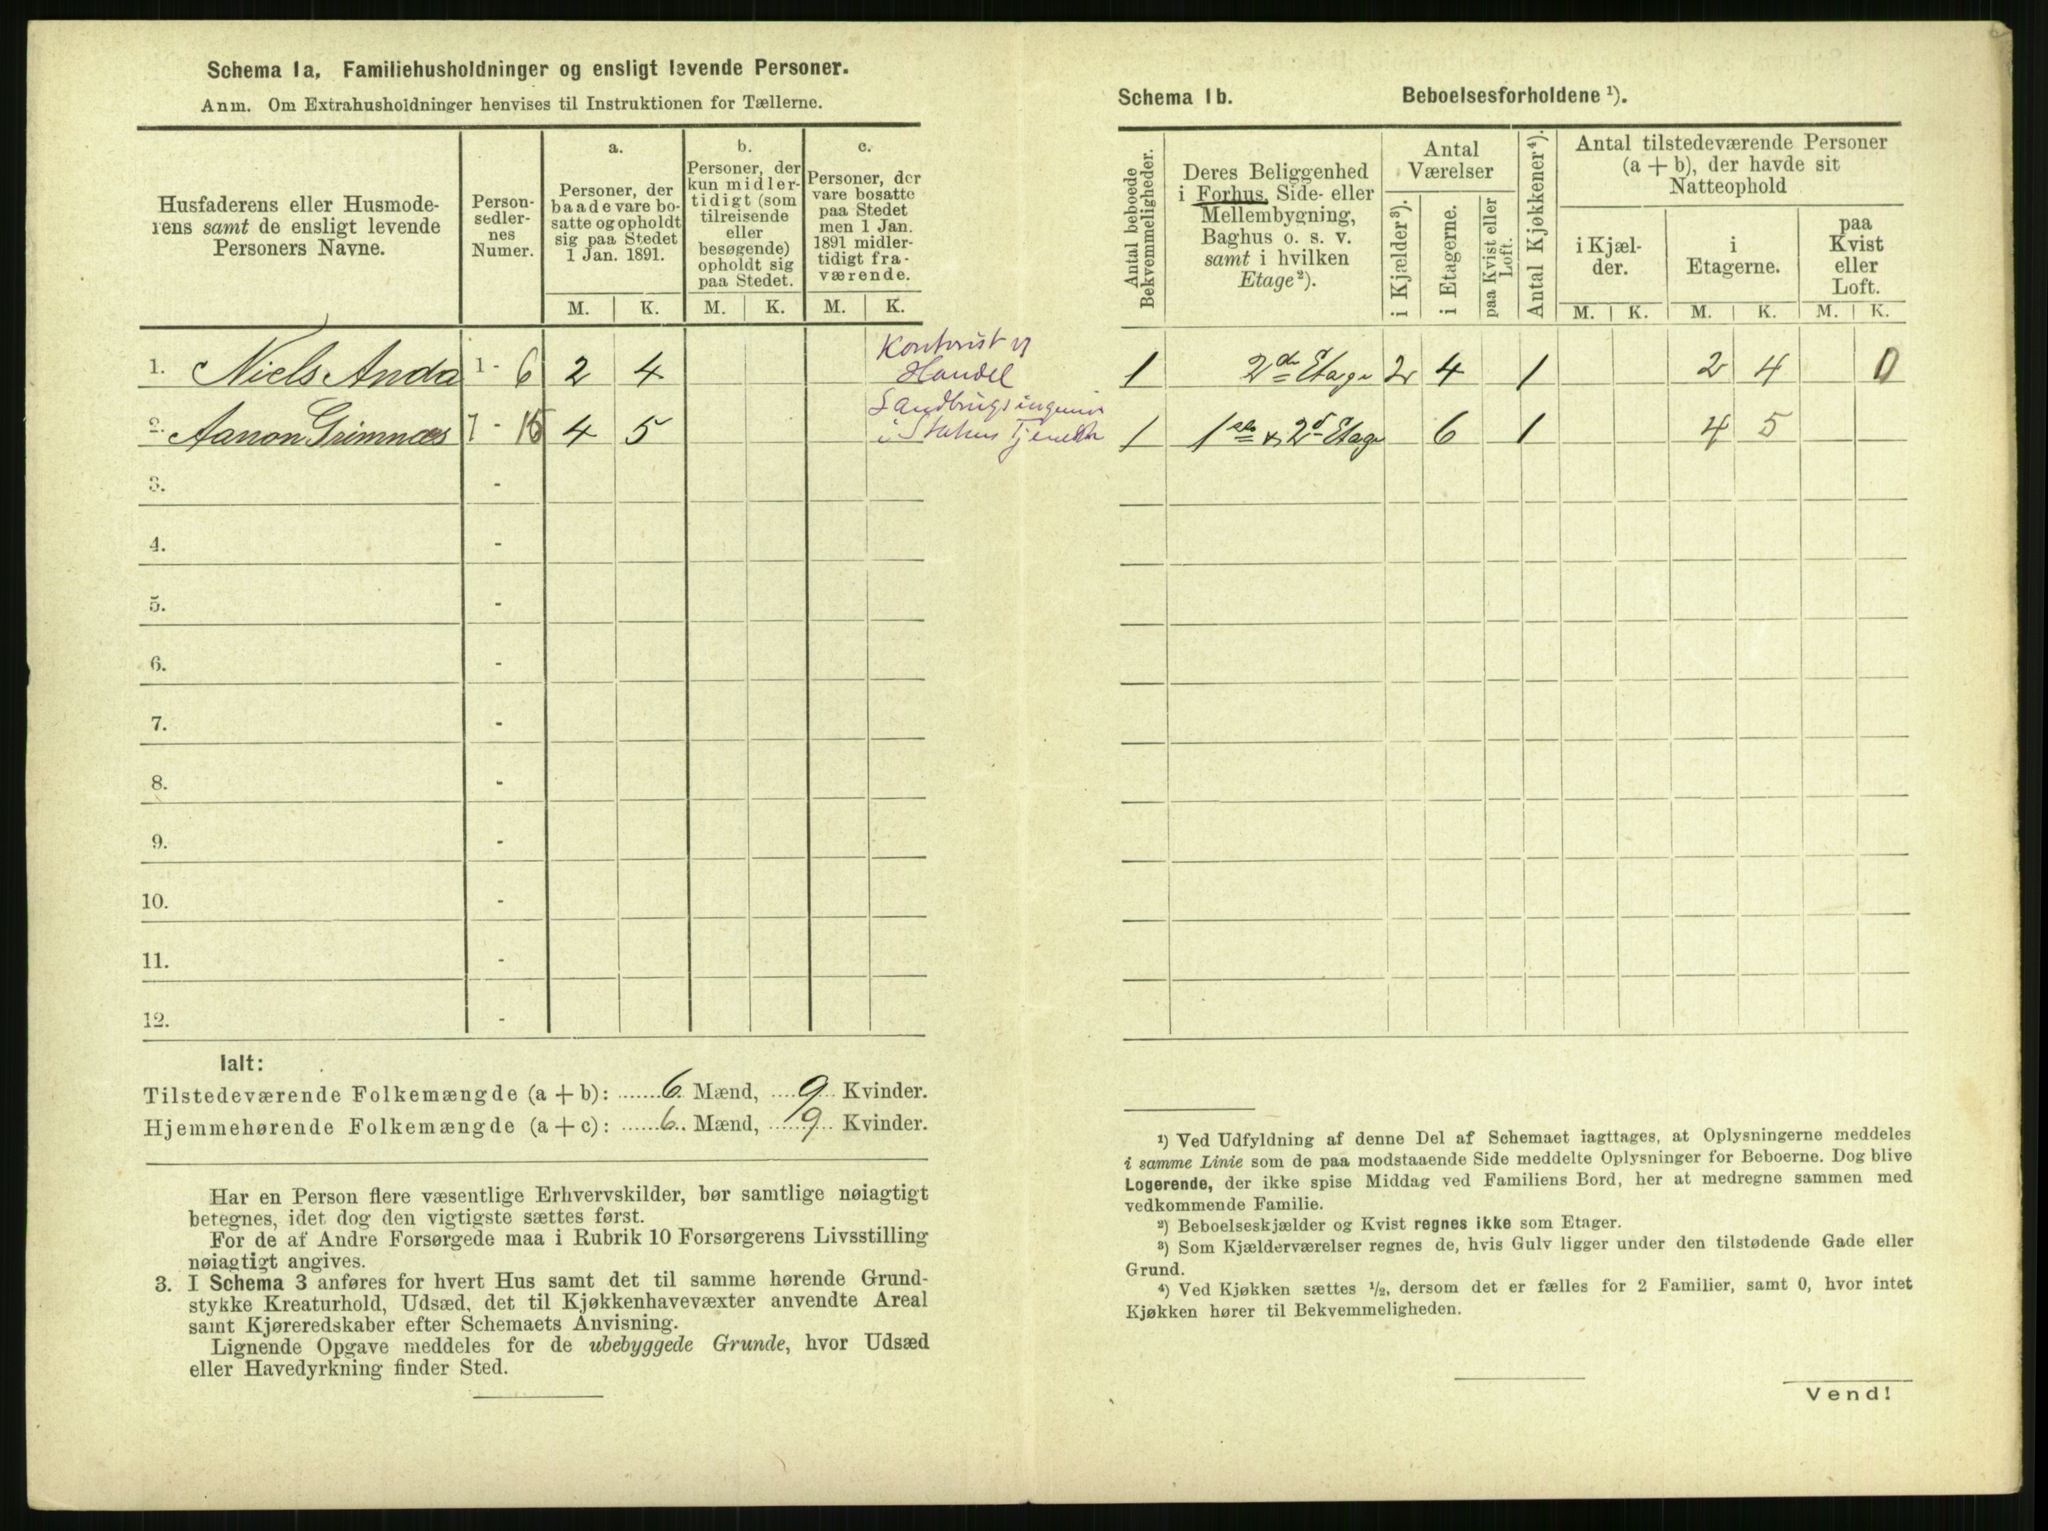 Schema 1a. Familiehusholdninger og ensligt levende Personer.
Anm. Om Extrahusholdninger henvises til Instruktionen for Tællerne.
Husfaderens eller Husmode-
rens samt de ensligt levende
Personers Navne.
Person-
sedler-
nes
Numer.
a.
Personer, der
baade vare bo-
satte og opholdt
sig paa Stedet
1 Jan. 1891.
b.
Personer, der
kun midler-
tidigt (som
tilreisende
eller
besøgende)
opholdt sig
paa Stedet.
c.
Personer, der
vare bosatte
paa Stedet
men 1 Jan.
1891 midler-
tidigt fra-
værende.
M. K. M. K. M. K.
1. Niels Anda 1 - 6 2 4
Kontorist v
Handel
2. Aanon Grimnæs 7 - 15 4 5
i Statens Tjeneste
3. -
4. -
5. -
6. -
7. -
8. -
9. -
10. -
11. -
12. -
Ialt:
Tilstedeværende Folkemængde (a + b): 6 Mænd, 9 Kvinder.
Hjemmehørende Folkemængde (a + c): 6 Mænd, 9 Kvinder.
Har en Person flere væsentlige Erhvervskilder, bør samtlige nøiagtigt
betegnes, idet dog den vigtigste sættes først.
For de af Andre Forsørgede maa i Rubrik 10 Forsørgerens Livsstilling
nøiagtigt angives.
3. I Schema 3 anføres for hvert Hus samt det til samme hørende Grund-
stykke Kreaturhold, Udsæd, det til Kjøkkenhavevæxter anvendte Areal
samt Kjøreredskaber efter Schemaets Anvisning.
Lignende Opgave meddeles for de ubebyggede Grunde, hvor Udsæd
eller Havedyrkning finder Sted.
Schema 1b. Beboelsesforholdene ¹).
Antal beboede
Bekvemmeligheder.
Deres Beliggenhed
i Forhus, Side- eller
Mellembygning,
Baghus o. s. v.
samt i hvilken
Etage²).
Antal
Værelser
i Kjælder³).
i Etagerne.
paa Kvist eller
Loft.
Antal Kjøkkener⁴).
Antal tilstedeværende Personer
(a + b), der havde sit
Natteophold
i Kjæl-
der.
i
Etagerne.
paa
Kvist
eller
Loft.
M. K. M. K. M. K.
1 2de Etage 2 4 1 2 4 0
1 1ste & 2d Etage 6 1 4 5
¹) Ved Udfyldning af denne Del af Schemaet iagttages, at Oplysningerne meddeles
i samme Linie som de paa modstaaende Side meddelte Oplysninger for Beboerne. Dog blive
Logerende, der ikke spise Middag ved Familiens Bord, her at medregne sammen med
vedkommende Familie.
²) Beboelseskjælder og Kvist regnes ikke som Etager.
³) Som Kjælderværelser regnes de, hvis Gulv ligger under den tilstødende Gade eller
Grund.
⁴) Ved Kjøkken sættes ½, dersom det er fælles for 2 Familier, samt 0, hvor intet
Kjøkken hører til Bekvemmeligheden.
Vend!